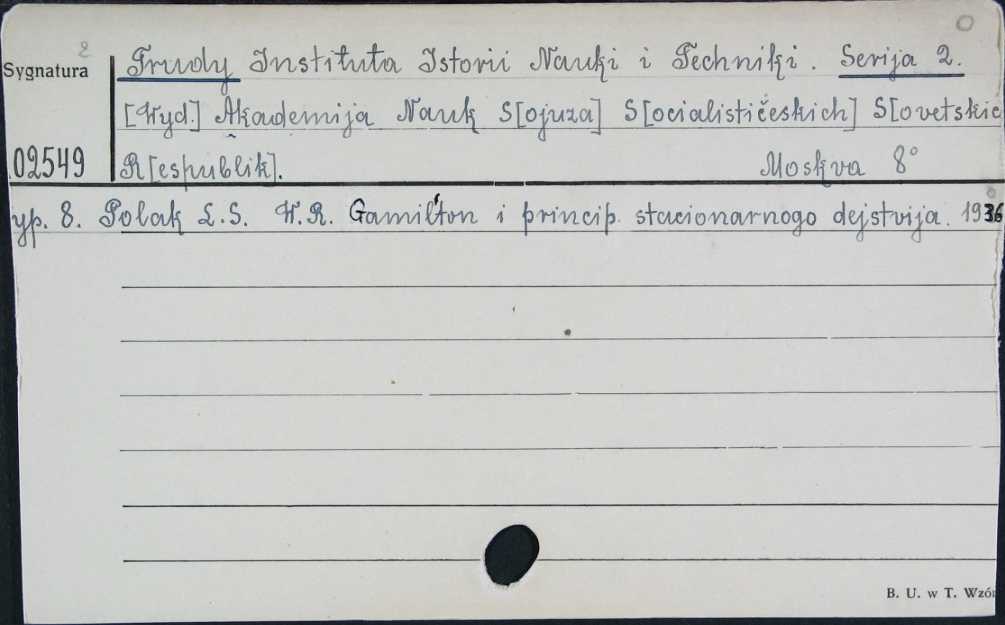 Sygnatura 2 Trudy Instituta Istorii Nauki i Techniki. Serija 2.
[Wyd.] Akademija Nauk S[ojuza] S[ocialističeskich] S[ovetskic
02549 R[espublik]. Moskva 8°
yp. 8. Polak L.S. W.R. Gamil'ton i princip stacionarnogo dejstvija. 1936
B. U. w T. Wzó